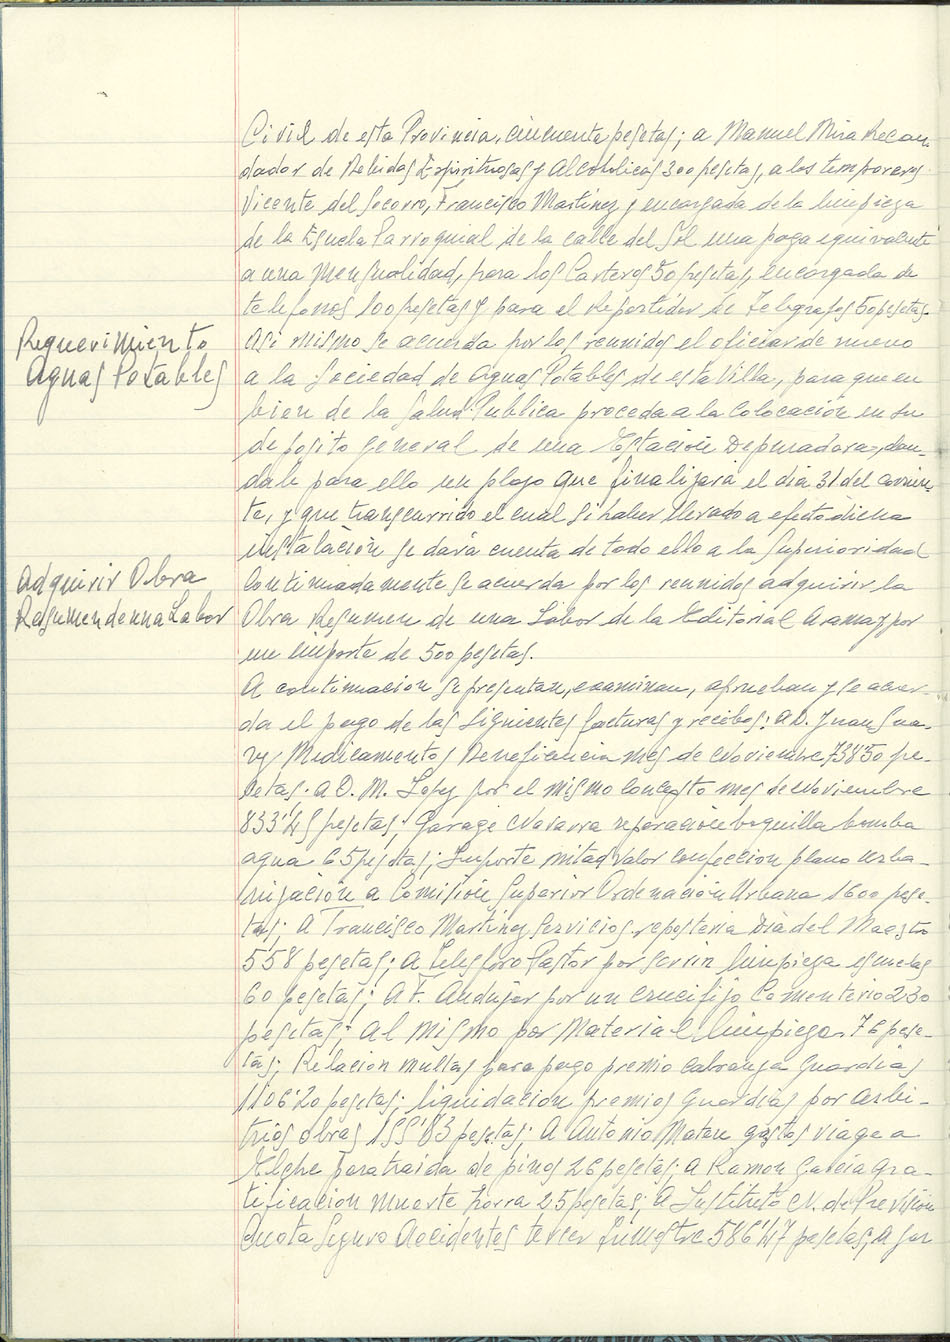 Civil de esta Provincia, cincuenta pesetas; a Manuel Mira Recau-
dador de Bebidas Espirituosas y Alcoholicas 300 pesetas, a los temporeros
Vicente del Socorro, Francisco Martinez y encargada de la limpieza
de la Escuela Parroquial de la calle del Sol una paga equivalente
a una mensualidad, para los Carteros 50 pesetas, encargada de
telefonos 100 pesetas y para el repartidor de Telegrafos 50 pesetas.
Requerimiento
Aguas Potables
Asi mismo se acuerda por los reunidos el oficiar de nuevo
a la Sociedad de Aguas Potables de esta Villa, para que en
bien de la Salud Publica proceda a la colocación en su
deposito general de una Estación Depuradora, dan-
dole para ello un plazo que finalizará el dia 31 del corrien-
te, y que transcurrido el cual si haber llevado a efecto dicha
instalación se dará cuenta de todo ello a la Superioridad
Adquirir Obra
Resumen de una Labor
Continuadamente se acuerda por los reunidos adquirir la
Obra Resumen de una Labor de la Editorial y por
un importe de 500 pesetas.
A continuacion se presentan, examinan, aprueban y se acuer-
da el pago de las siguientes facturas y recibos: a D. Juan
Medicamentos Beneficencia mes de Noviembre pe-
setas. a D. M. Lopez por el mismo concepto mes de Noviembre
833'45 pesetas; Garage Navarra reparación boquilla bomba
agua 65 pesetas; Importe mitad valor confeccion plano urba-
nización a Comisión Superior Ordenación Urbana 1600 pese-
tas; A Francisco Martinez servicios reposteria Dia del Maestro
558 pesetas; A Telesforo Pastor por limpieza escuelas
60 pesetas; A F. Andujar por un crucifijo Cementerio 230
pesetas; Al mismo por Material limpieza 76 pese-
tas; Relacion multas para pago premio cobranza Guardias
1106'20 pesetas; liquidación premios Guardias por arbi-
trios obras 155'83 pesetas; A Antonio gastos viage a
Elche para traida de pinos 26 pesetas; a Ramon Garcia gra-
tificacion muerte zorra 25 pesetas; A Instituto N. de Previsión
Cuota Seguro Accidentes tercer trimestre 586'47 pesetas; a